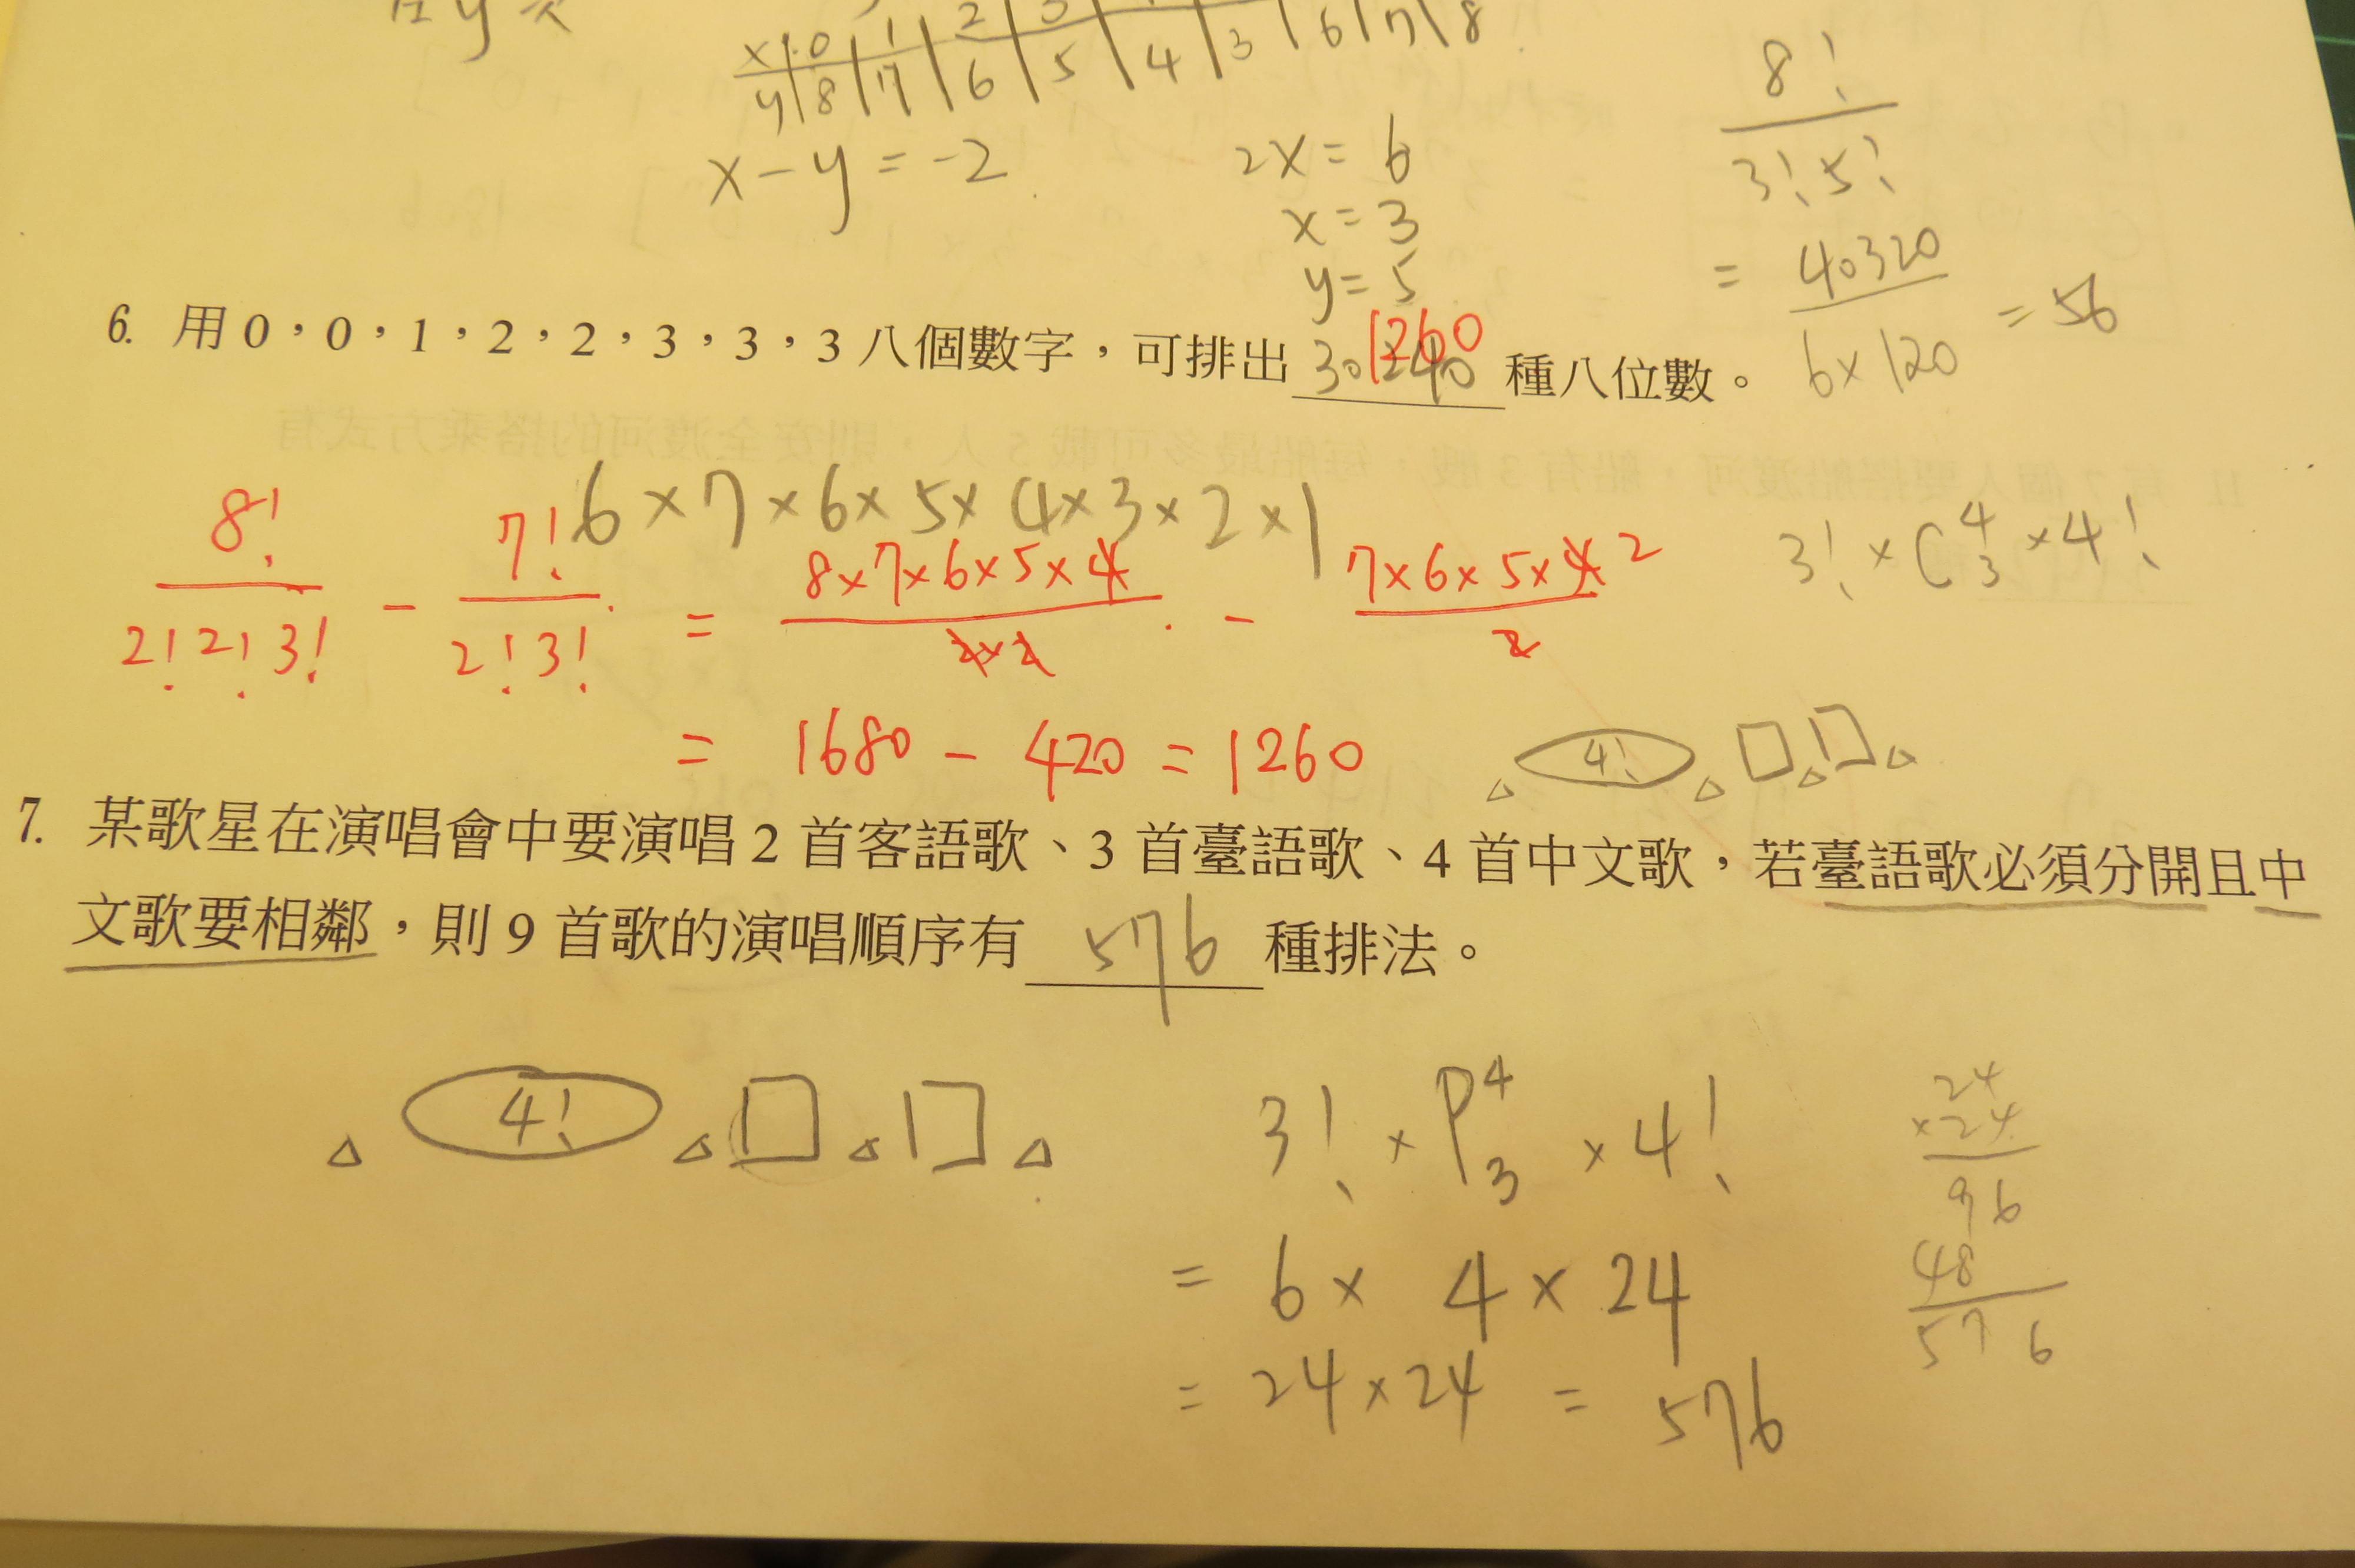 x 0 1 2 3 6 7 8
y 8 7 6 5 4 3
x - y = -2
2x = 6
x = 3
y = 5
8!
3! 5!
= 40320
6 x 120
= 56
6. 用 0，0，1，2，2，3，3，3 八個數字，可排出 1260 種八位數。
6 x 7 x 6 x 5 x 4 x 3 x 2 x 1
8! / 2! 2! 3! - 7! / 2! 3! = 8 x 7 x 6 x 5 x 4 / 2 x 2 - 7 x 6 x 5 x 4 2 / 2
= 1680 - 420 = 1260
3! x C^4_3 x 4!
△ 4! △ □ △ □ △
7. 某歌星在演唱會中要演唱 2 首客語歌、3 首臺語歌、4 首中文歌，若臺語歌必須分開且中
文歌要相鄰，則 9 首歌的演唱順序有 576 種排法。
△ 4! △ □ △ □ △
3! x P^4_3 x 4!
= 6 x 4 x 24
= 24 x 24 = 576
24
x 24
96
48
576